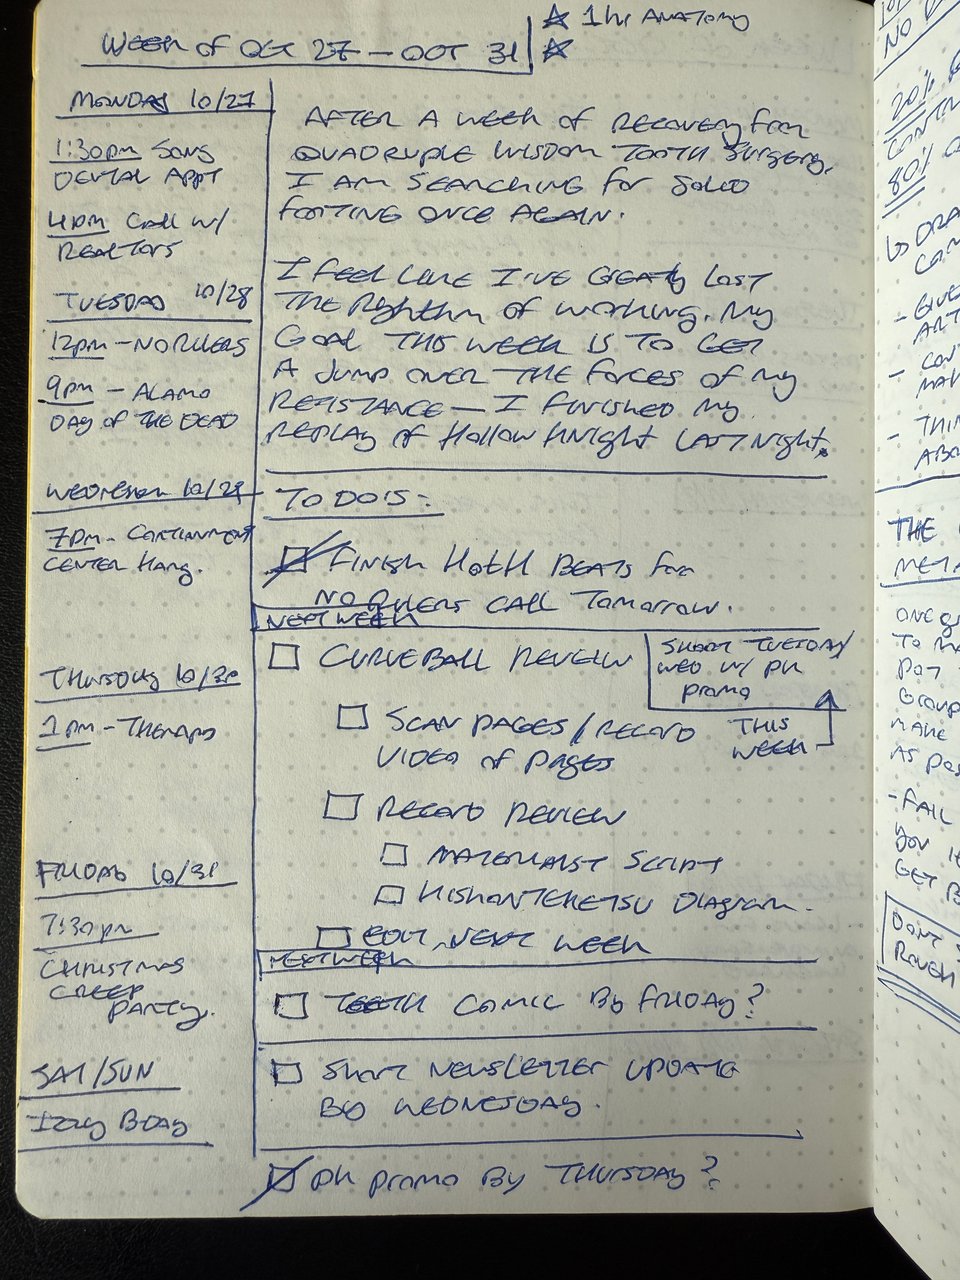 WEEK OF OCT 27 - OCT 31
☆ 1 hr ANATOMY
☆
MONDAY 10/27
1:30pm SONS
DENTAL APPT
4pm CALL W/
REALTORS
TUESDAY 10/28
12pm - NO RULERS
9pm - ALAMO
DAY OF THE DEAD
WEDNESDAY 10/29
7pm - CONTAINMENT
CENTER HANG.
THURSDAY 10/30
1pm - THERAPY
FRIDAY 10/31
7:30pm
CHRISTMAS
CREEP
PARTY.
SAT/SUN
IZZY BDAY
AFTER A WEEK OF RECOVERY FROM
QUADRUPLE WISDOM TOOTH SURGERY,
I AM SEARCHING FOR SOLID
FOOTING ONCE AGAIN.
I FEEL LIKE I'VE GREATLY LOST
THE RHYTHM OF WORKING. MY
GOAL THIS WEEK IS TO GET
A JUMP OVER THE FORCES OF MY
RESISTANCE - I FINISHED MY
REPLAY OF HOLLOW KNIGHT LAST NIGHT.
TO DO'S:
FINISH HOTH BEATS FOR
NO RULERS CALL TOMORROW.
NEXT WEEK
CURVEBALL REVIEW
SHORT TUESDAY/
WED W/ PH
PROMO
THIS
WEEK
SCAN PAGES/RECORD
VIDEO OF PAGES
RECORD REVIEW
MATERIALIST SCRIPT
KISHOTENKETSU DIAGRAM.
EDIT NEXT WEEK
NEXT WEEK
TEETH COMIC BY FRIDAY?
SHORT NEWSLETTER UPDATE
BY WEDNESDAY.
PH PROMO BY THURSDAY?
NO
20%
80%
THE
META
- FAIL
GET B
DON'T
ROUGH